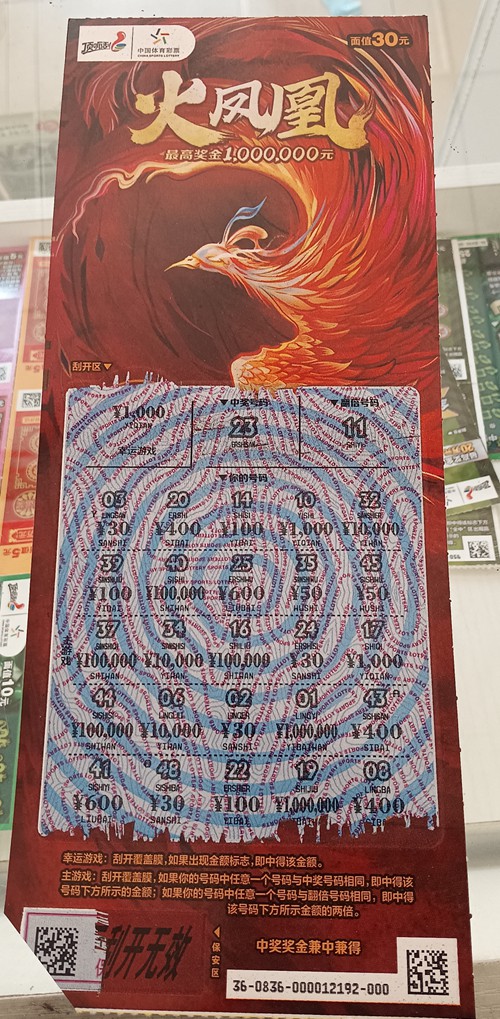 顶呱刮
中国体育彩票
CHINA SPORTS LOTTERY
面值30元
火凤凰
最高奖金1,000,000元
刮开区▼
¥1,000
YIQIAN
幸运游戏
▼中奖号码
23
ERSHSAN
▼翻倍号码
11
SHIYI
▼你的号码
03 20 14 10 32
LINGSAN ERSHI SHISI YISHI SANSHIER
¥30 ¥400 ¥100 ¥1,000 ¥10,000
SANSHI SIBAI YIBAI YIQIAN YIWAN
39 40 25 35 45
SANSHIJIU SISHI ERSHIWU SANSHIWU SISHIWU
¥100 ¥100,000 ¥600 ¥50 ¥50
YIBAI SHIWAN LIUBAI WUSHI WUSHI
37 34 16 24 17
SANSHIQI SANSHISI SHILIU ERSHISI SHIQI
¥100,000 ¥10,000 ¥100,000 ¥30 ¥1,000
SHIWAN YIWAN SHIWAN SANSHI YIQIAN
44 06 02 01 43
SISHISI LINGLIU LINGER LINGYI SISHISAN
¥100,000 ¥10,000 ¥30 ¥1,000,000 ¥400
SHIWAN YIWAN SANSHI YIBAIWAN SIBAI
41 48 22 19 08
SISHIYI SISHIBA ERSHIER SHIJIU LINGBA
¥600 ¥30 ¥100 ¥1,000,000 ¥400
LIUBAI SANSHI YIBAI YIBAIWAN SIBAI
幸运游戏：刮开覆盖膜，如果出现金额标志，即中得该金额。
主游戏：刮开覆盖膜，如果你的号码中任意一个号码与中奖号码相同，即中得该
号码下方所示的金额；如果你的号码中任意一个号码与翻倍号码相同，即中得
该号码下方所示金额的两倍。
刮开无效
◀保安区
中奖奖金兼中兼得
36-0836-000012192-000
面值10元